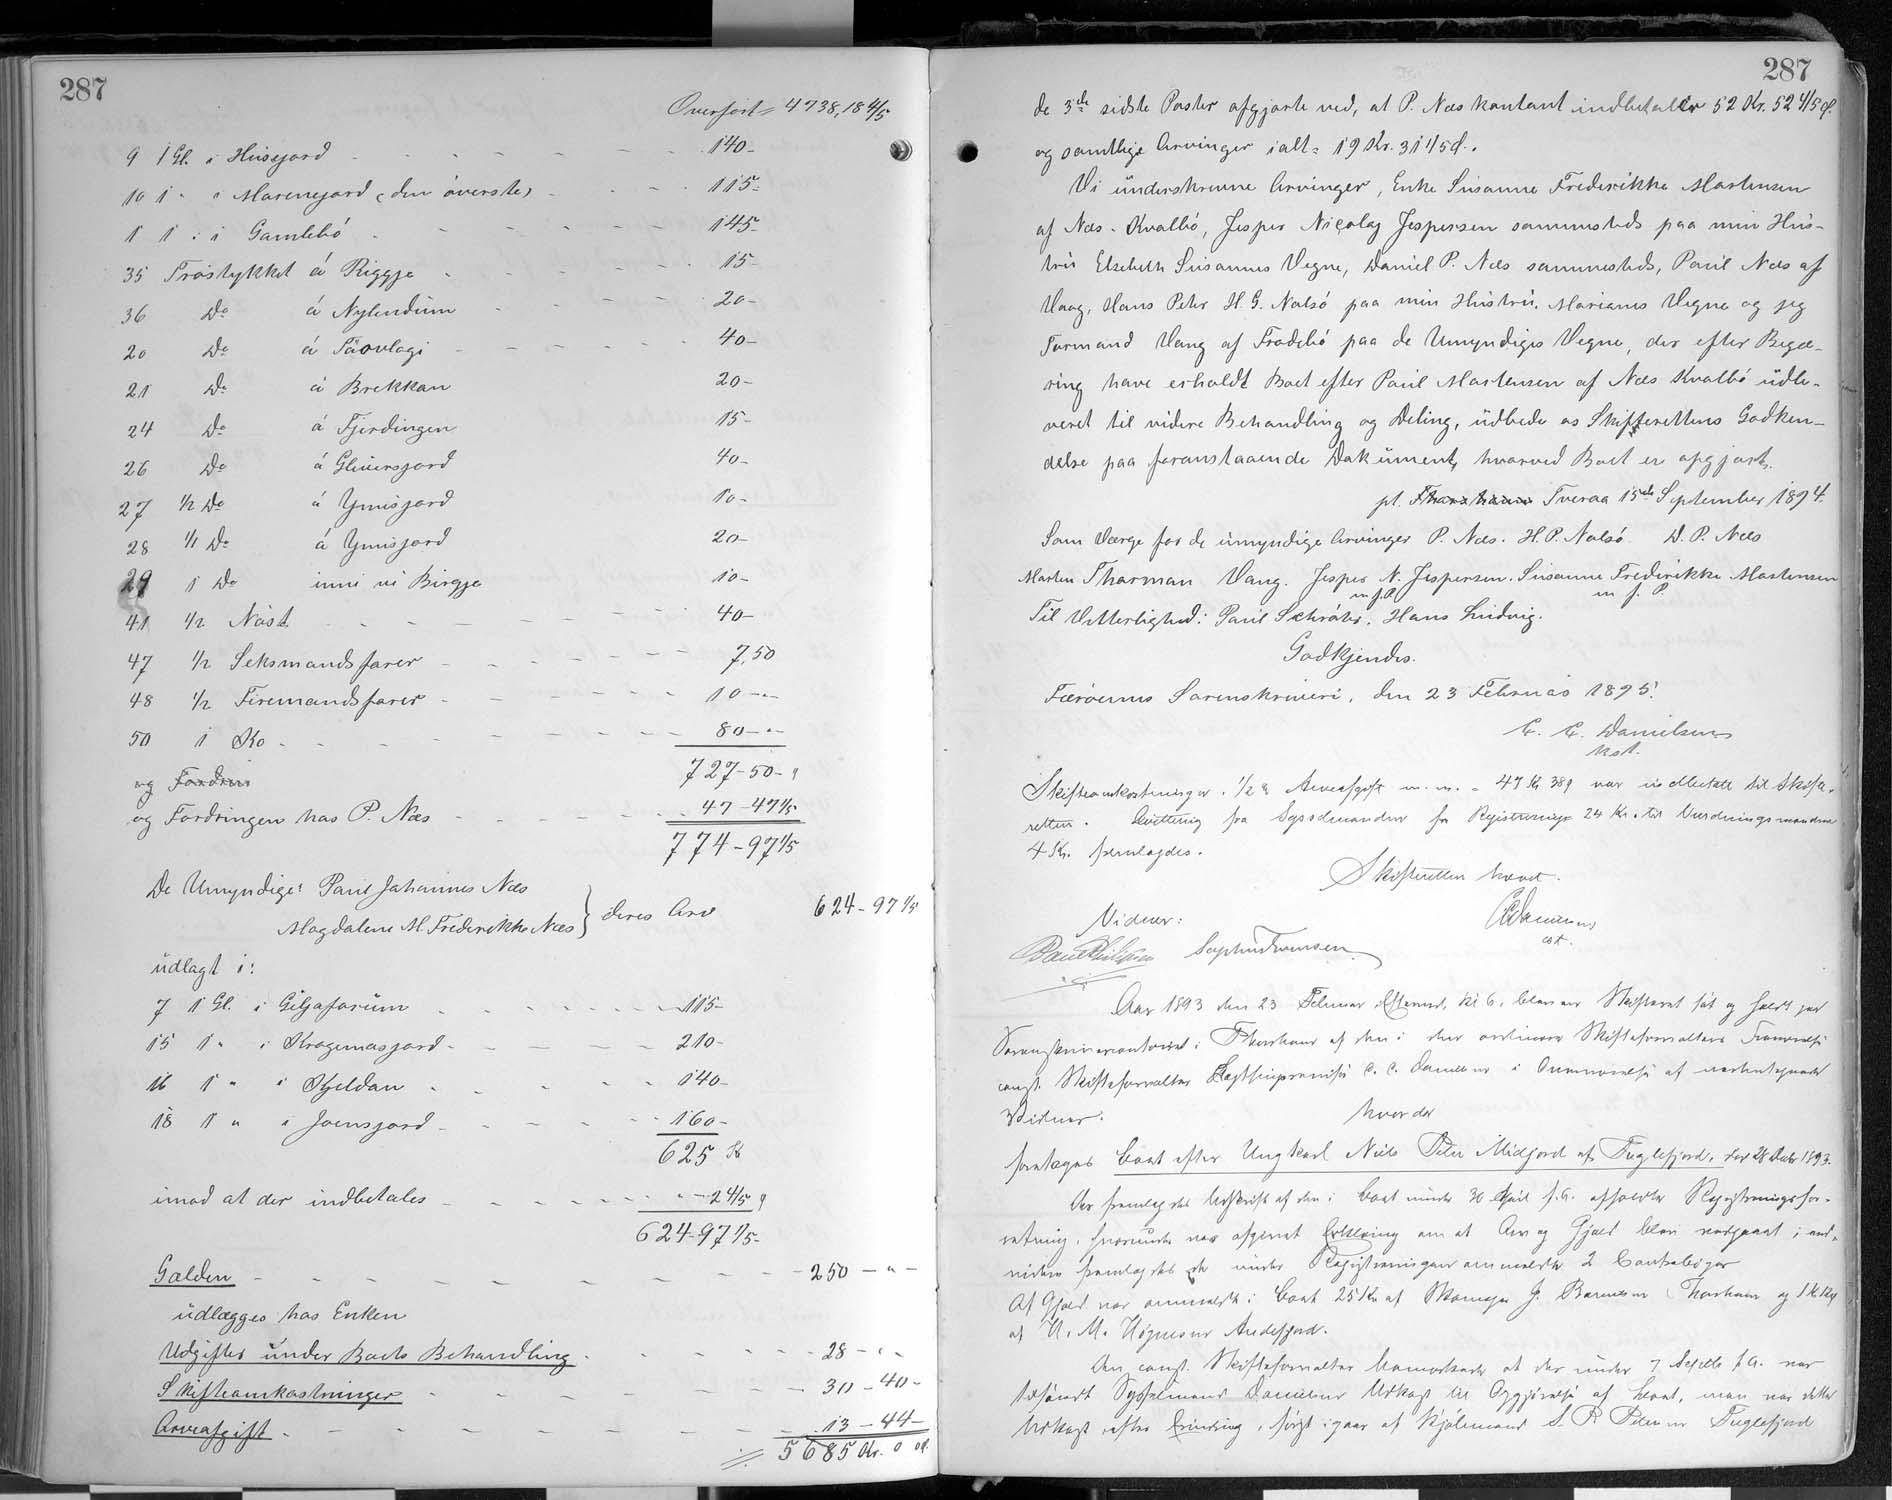 287
Overført = 4738,18 4/5
9 1 Gl. i Húsejord - 140-
10 1 " " Marenejord (den øverste) - 115-
1 1 : i Gamlebó - 145-
35 Træstykket á Riggje - 15-
36 Do á Nylendum - 20-
20 Do á Táovlagi - 40-
21 Do á Brekkan - 20-
24 Do á Fjerdingen - 15-
26 Do á Gliversjord - 40-
27 1/2 Do á Ymisjord - 10-
28 1/1 Do á Ymisjord - 20-
29 1 Do inni ui Birgje - 10-
41 1/2 Nóst - 40-
47 1/2 Seksmandsfarer - 7,50
48 1/2 Firemandsfarer - 10-"-
50 1 Ko - 80-"-
727-50-"
og Fordrin
og Fordringen hos P. Næs - 47-47 1/5
774-97 1/5
De Umyndige: Poul Johannes Næs
Magdalene M. Frederikke Næs } deres Arv 624-97 1/5
udlagt i:
7 1 Gl. i Giljaforum - 115-
15 1 " i Kragemasjord - 210-
16 1 " i Kjeldan - 140-
18 1 " i Joensjord - 160-
625 Kr
imod at der indbetales - "-2 4/5
624-97 1/5-
Gælden - 250-"-
udlægges hos Enken
Udgifter under Boets Behandling - 28-"-
Skifteomkostninger - 30-40-
Arveafgift - 13-44-
5685 Kr. 0 Ø.
287
de 3de sidste Poster afgjorte ved, at P. Næs kontant indbetaler 52 Kr. 52 4/5 Ø.
og samtlige Arvinger ialt = 19 Kr. 31 4/5 Ø.
Vi underskrevne Arvinger, Enke Susanne Frederikke Mortensen
af Næs - Kvalbó, Jesper Nicolaj Jespersen sammesteds paa min Hus-
tru Elsebeth Susannes Vegne, Daniel P. Næs sammesteds, Poul Næs af
Vaag, Hans Peter H. G. Nolsó paa min Hustru Marianes Vegne og jeg
Tormand Vang af Frodebó paa de Umyndiges Vegne, der efter Begæ-
ring have erholdt Boet efter Poul Mortensen af Næs Kvalbó udle-
veret til videre Behandling og Deling, udbede os Skifterettens Godken-
delse paa foranstaaende Dokument, hvorved Boet er opgjort.
pt. Thorshavn Tveraa 15de September 1894.
Som Værge for de umyndige Arvinger P. Næs. H. P. Nolsó. D. P. Næs
Morten Thorman Vang. Jesper N. Jespersen. Susanne Frederikke Mortensen
m. f. P. m. f. P.
Til Vitterlighed: Poul Schrøter. Hans Ludvig.
Godkjendes.
Færøernes Sorenskriveri, den 23 Februar 1895.
C. C. Danielsen
kst.
Skifteomkostninger, 1/2 % Arveafgift m. m. = 47 Kr 38 Ø var indbetalt til Skifte-
retten. Kvittering fra Sysselmanden for Registrering 24 Kr. & til Vurderingsmændene
4 Kr. fremlagdes.
Skifteretten hævet.
CCDanielsen
cst.
Vidner:
Aar 1893 den 23 Februar Efterm. Kl 6, blev en Skifteret sat og holdt paa
Sorenskrivercontoret i Thorshavn af den i den ordinære Skifteforvalters Fraværelse
const. Skifteforvalter C. C. Danielsen i Overværelse af undertegnede
Vidner.
hvor da
foretoges Boet efter Ungkarl Niels Peter Midjord af Fuglefjord, død 28 1893.
Der fremlagdes Udskrift af den i Boet under 30 April f. A. afholdte Registreringsfor-
retning, hvorunder var afgivet Erklæring om at Arv og Gjæld blev vedgaaet; end-
videre fremlagdes de under Registreringen anmeldte 2 Contrabøger
Af Gjæld var anmeldt i Boet 25 Kr af Skomager J. Thorshavn og
af H. M. Højgaard Andefjord.
Den const. Skifteforvalter bemærkede at der under 7 f. A. var
tilsendt Sysselmand Danielsen Udkast til Opgjørelse af Boet, men var dette
Udkast, efter Erindring, først igaar af Kjøbmand S. P. Petersen Fuglefjord